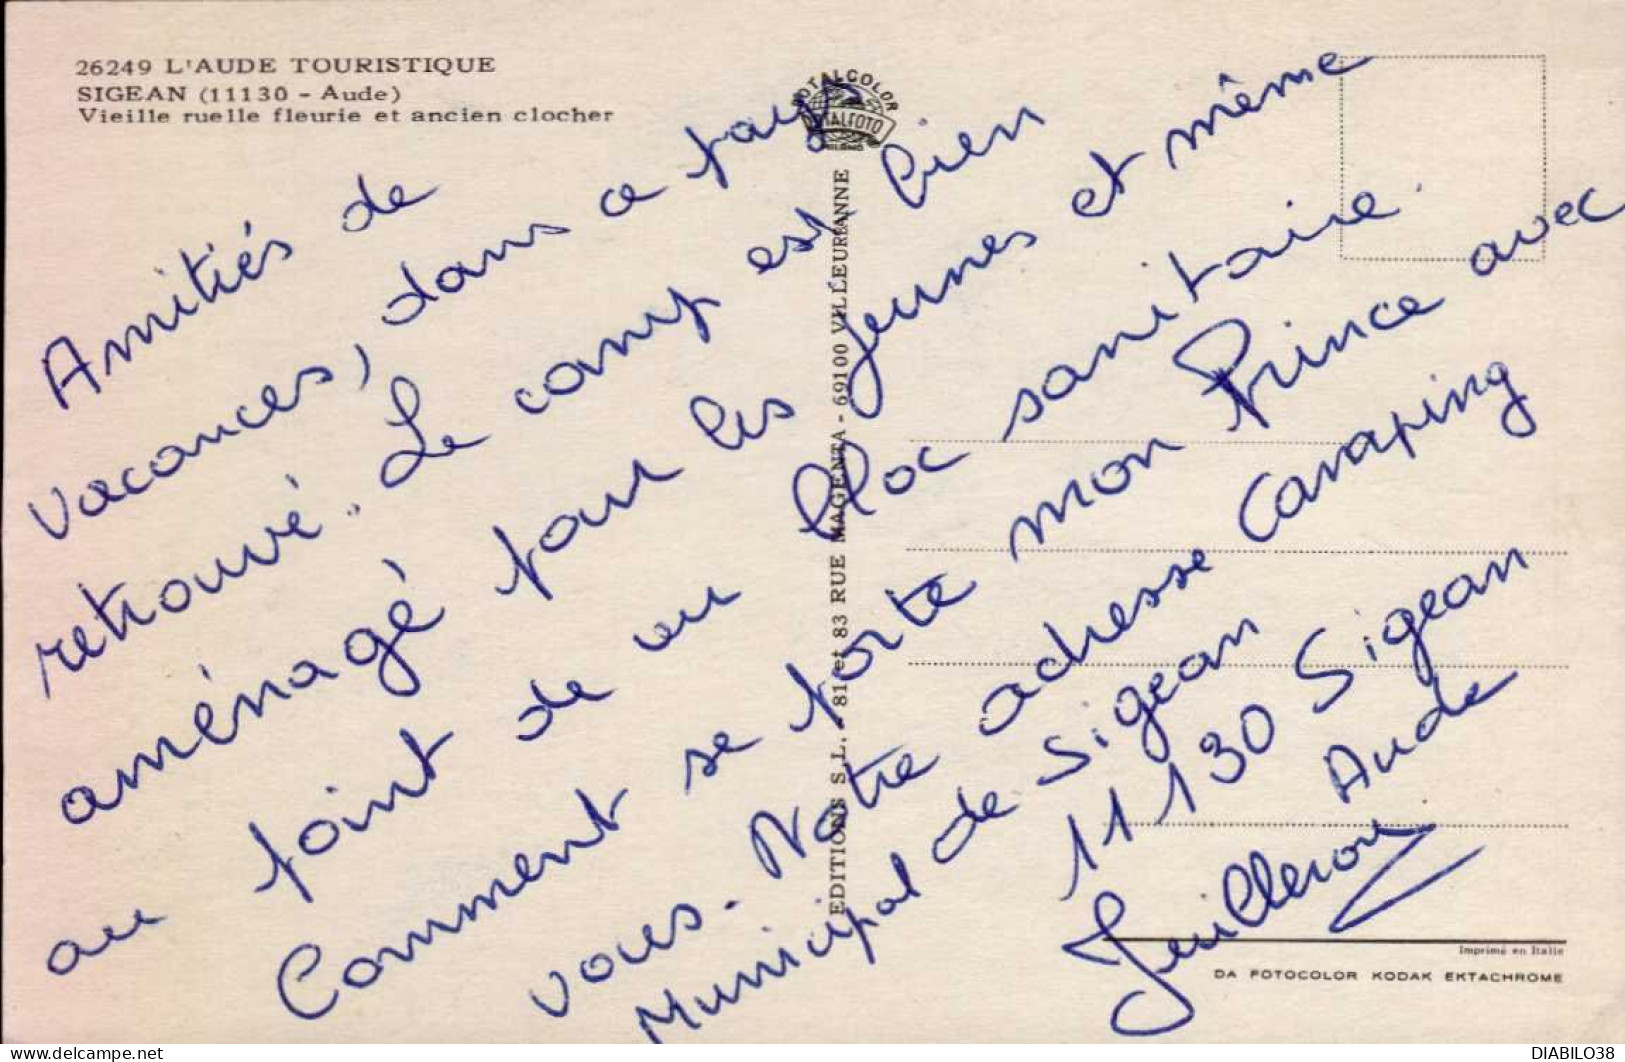 26249 L'AUDE TOURISTIQUE
SIGEAN (11130 - Aude)
Vieille ruelle fleurie et ancien clocher
TOTALCOLOR
ITALFOTO
MILANO
EDITIONS S.L. - 81 et 83 RUE MAGENTA - 69100 VILLEURBANNE
Amitiés de
vacances, dans ce pays
retrouvé. Le camp est bien
aménagé pour les jeunes et même
au point de vu bloc sanitaire.
Comment se porte mon Prince avec
vous. Notre adresse Camping
Municipal de Sigean
11130 Sigean
Aude
Juilleron
Imprimé en Italie
DA FOTOCOLOR KODAK EKTACHROME
DIABILO38